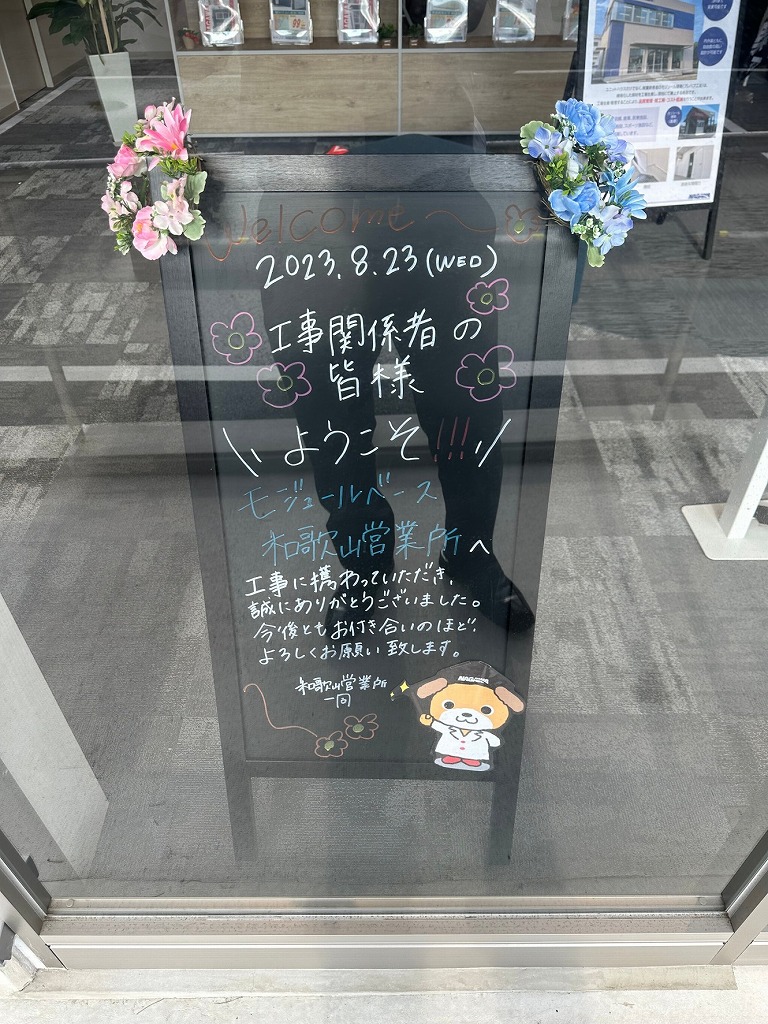 Welcome〜
2023.8.23(WED)
工事関係者の
皆様
\\ ようこそ!!! //
モジュールベース
和歌山営業所へ
工事に携わっていただき、
誠にありがとうございました。
今後ともお付き合いのほど、
よろしくお願い致します。
和歌山営業所
一同